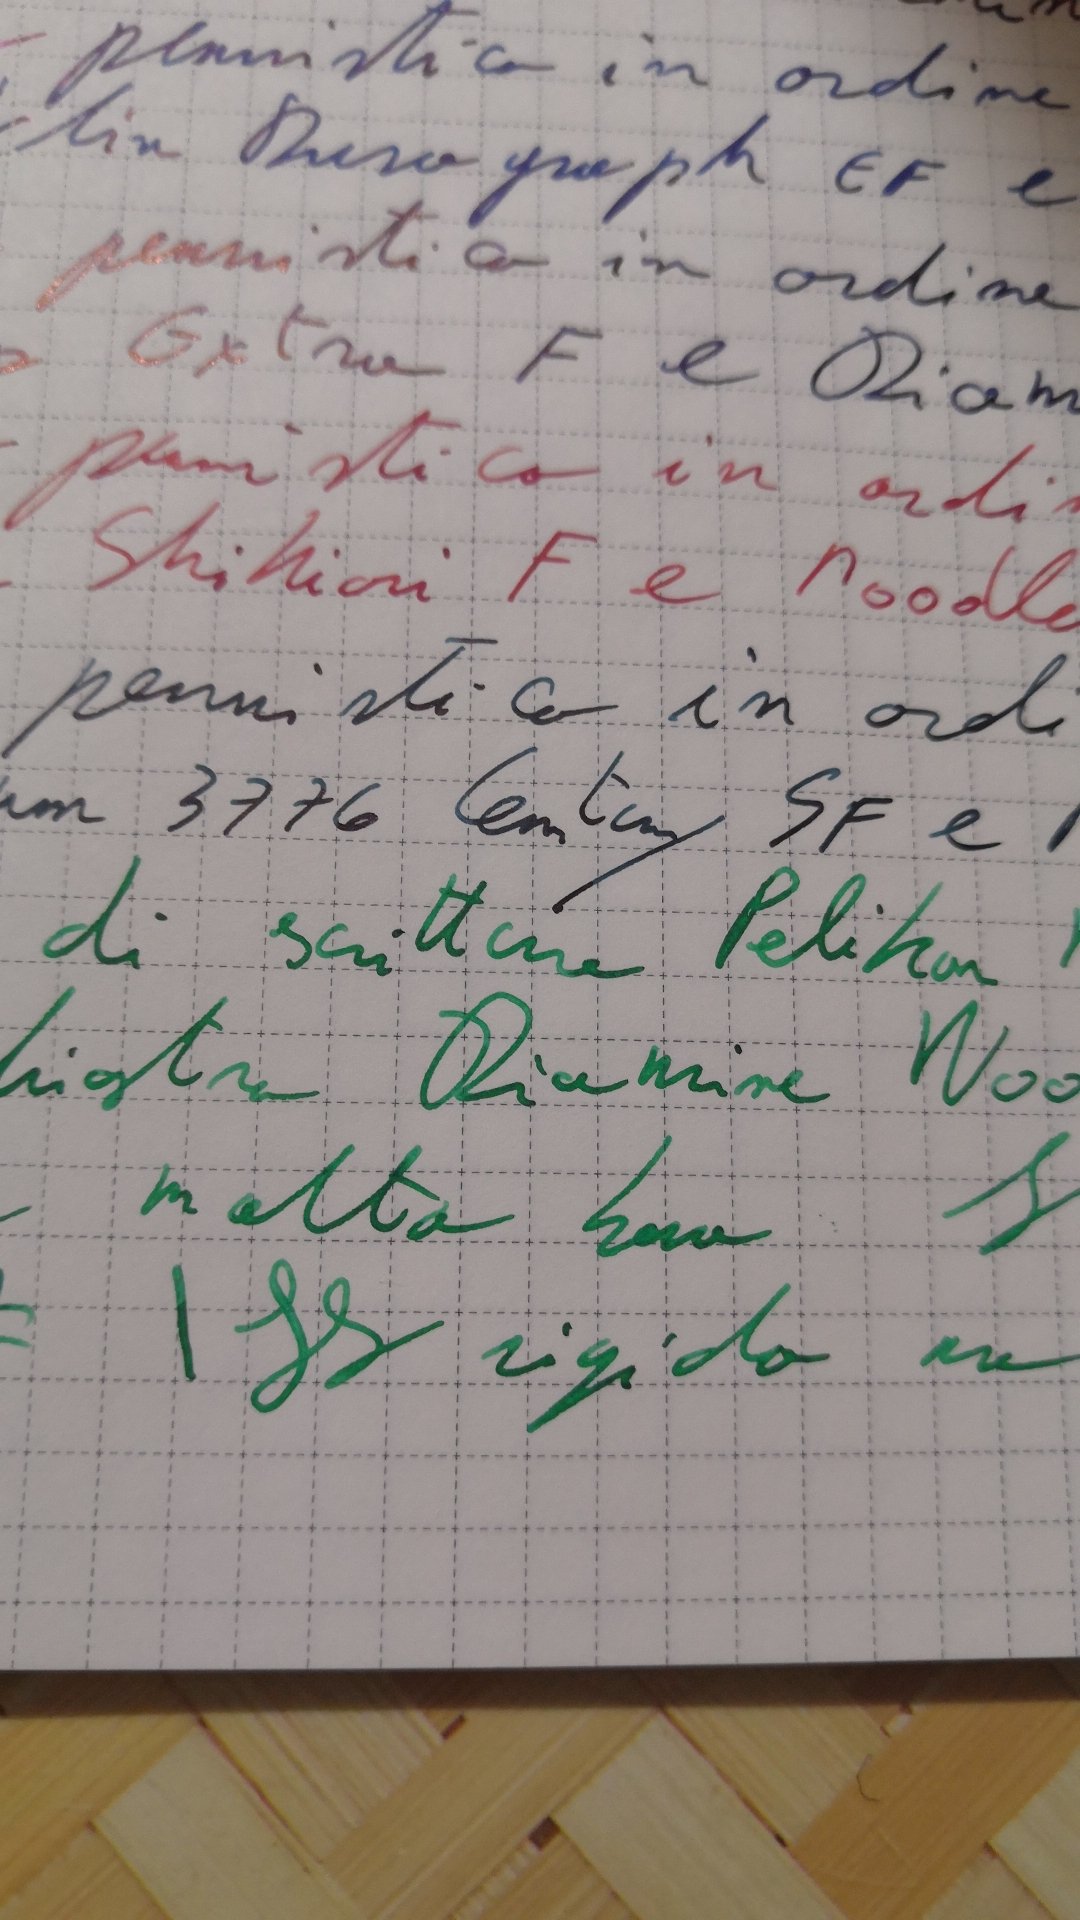 pennistica in ordine
lin Durograph EF e
pennistica in ordine
Extra F e Diam
pennistica in ordin
Shikiori F e Noodle
pennistica in ordi
um 3776 Century SF e
di scrittura Pelikan
hiostra Diamine Woo
molto
rigido